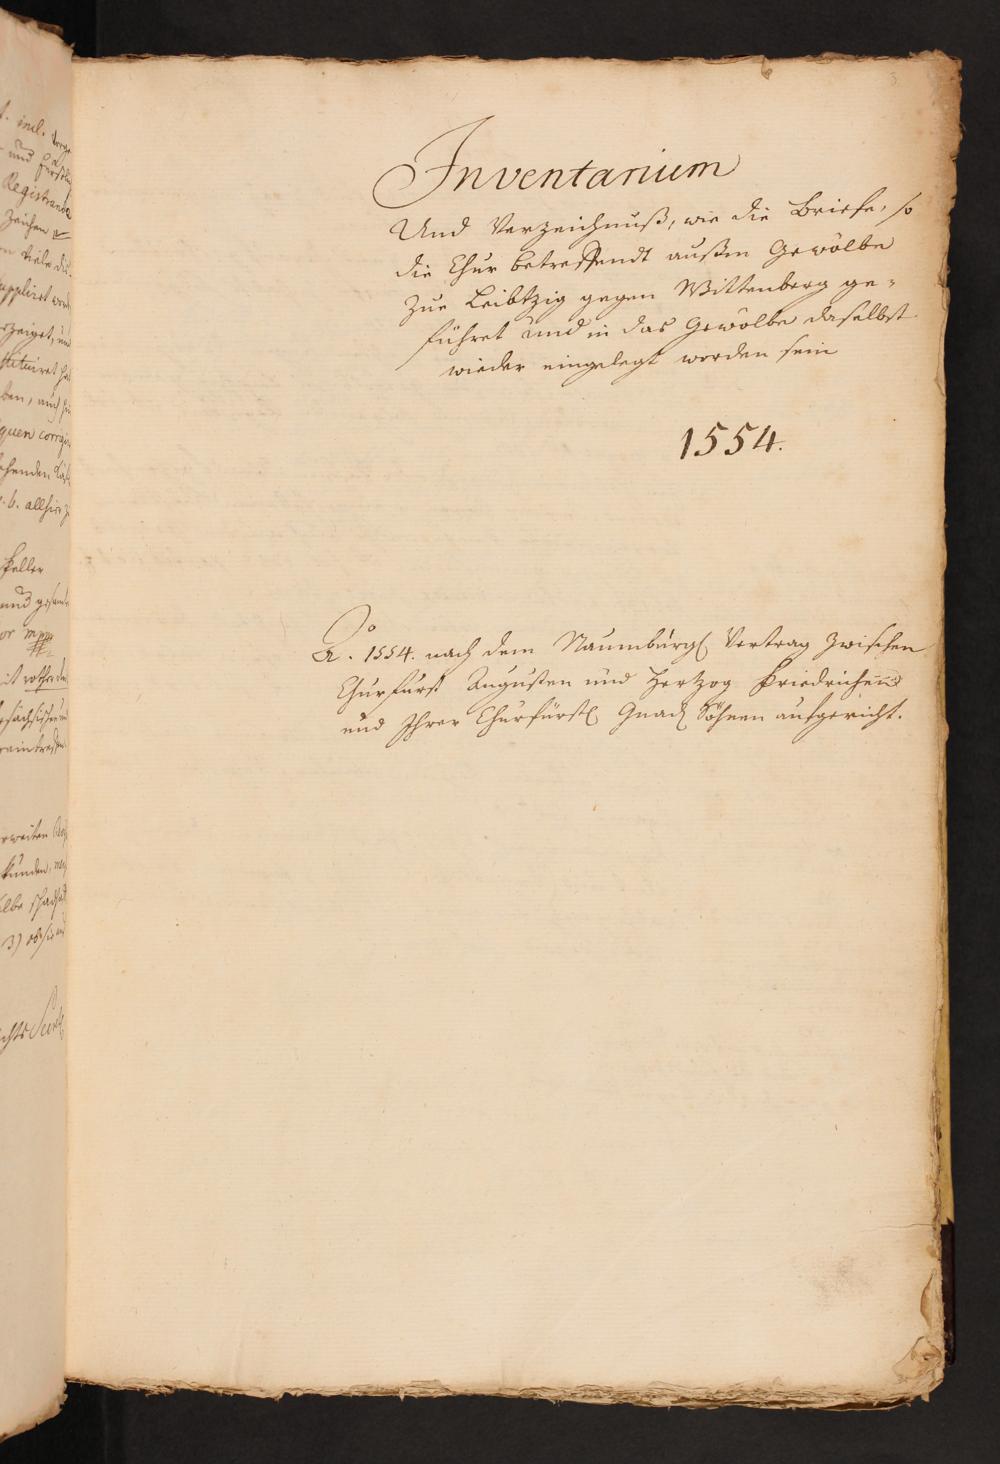 3
Inventarium
Und Verzeichnuß, wie die Briefe, so
die Chur betreffendt außm Gewölbe
zue Leibtzig gegen Wittenberg ge-
führet und in das Gewölbe daselbst
wieder eingelegt worden sein
1554.
Ao. 1554. nach dem Naumburg. Vertrag zwischen
Churfürst Augusten und Hertzog Friedrichen
und Ihrer Churfürstl Gnad Söhnen aufgericht.
incl.
und
Registrande
Zeichen
viele die
suppliret
und
auch
corrigi
allhier
Keller
und
mit rother
3) ob sie